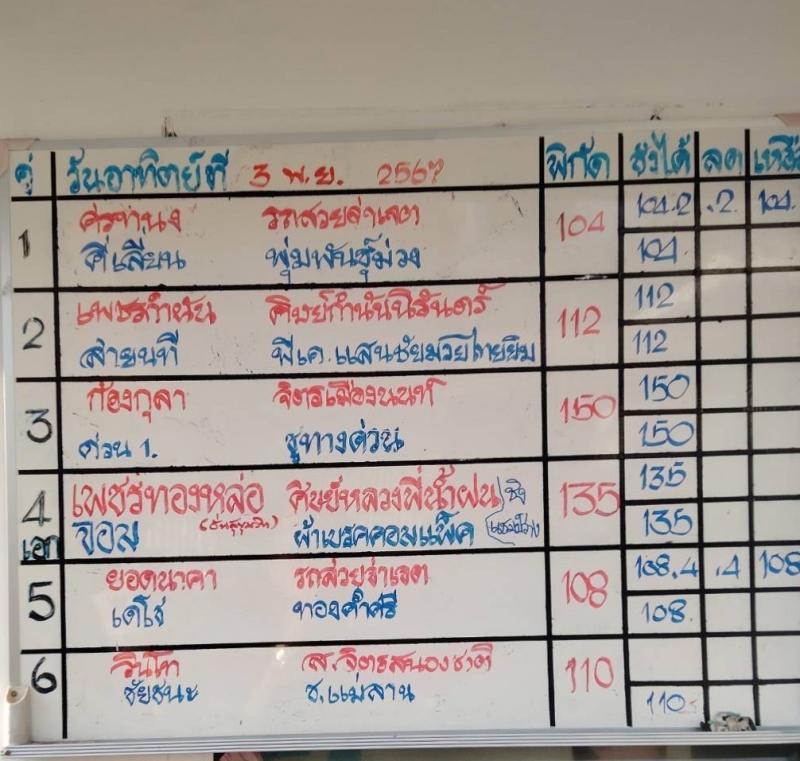 คู่ วันอาทิตย์ที่ 3 พ.ย. 2567 พิกัด ชั่งได้ ลด
1 ศรชำนง รถสวยจ่าเจต 104 104.2 .2 104.
ศิเลียน พุ่มพันธุ์ม่วง 104
2 เพชรกำนัน ศิษย์กำนันนิรันดร์ 112 112
สายนที พี.เค.แสนชัยมวยไทยยิม 112
3 ก้องกุลา จิตรเมืองนนท์ 150 150
ศรน 1. ชูทางด่วน 150
4 เพชรทองหล่อ ศิษย์หลวงพี่น้ำฝน ชิง 135 135
เอก จอม ผ้าเบรคคอมแพ็ค 135
5 ยอดนาคา รถสวยจ่าเจต 108 108.4 .4 108
เดโช ทองคำศรี 108.
6 วินโท ส.จิตรสนองชาติ 110
ชัยชนะ ช.แม่ลาน 110